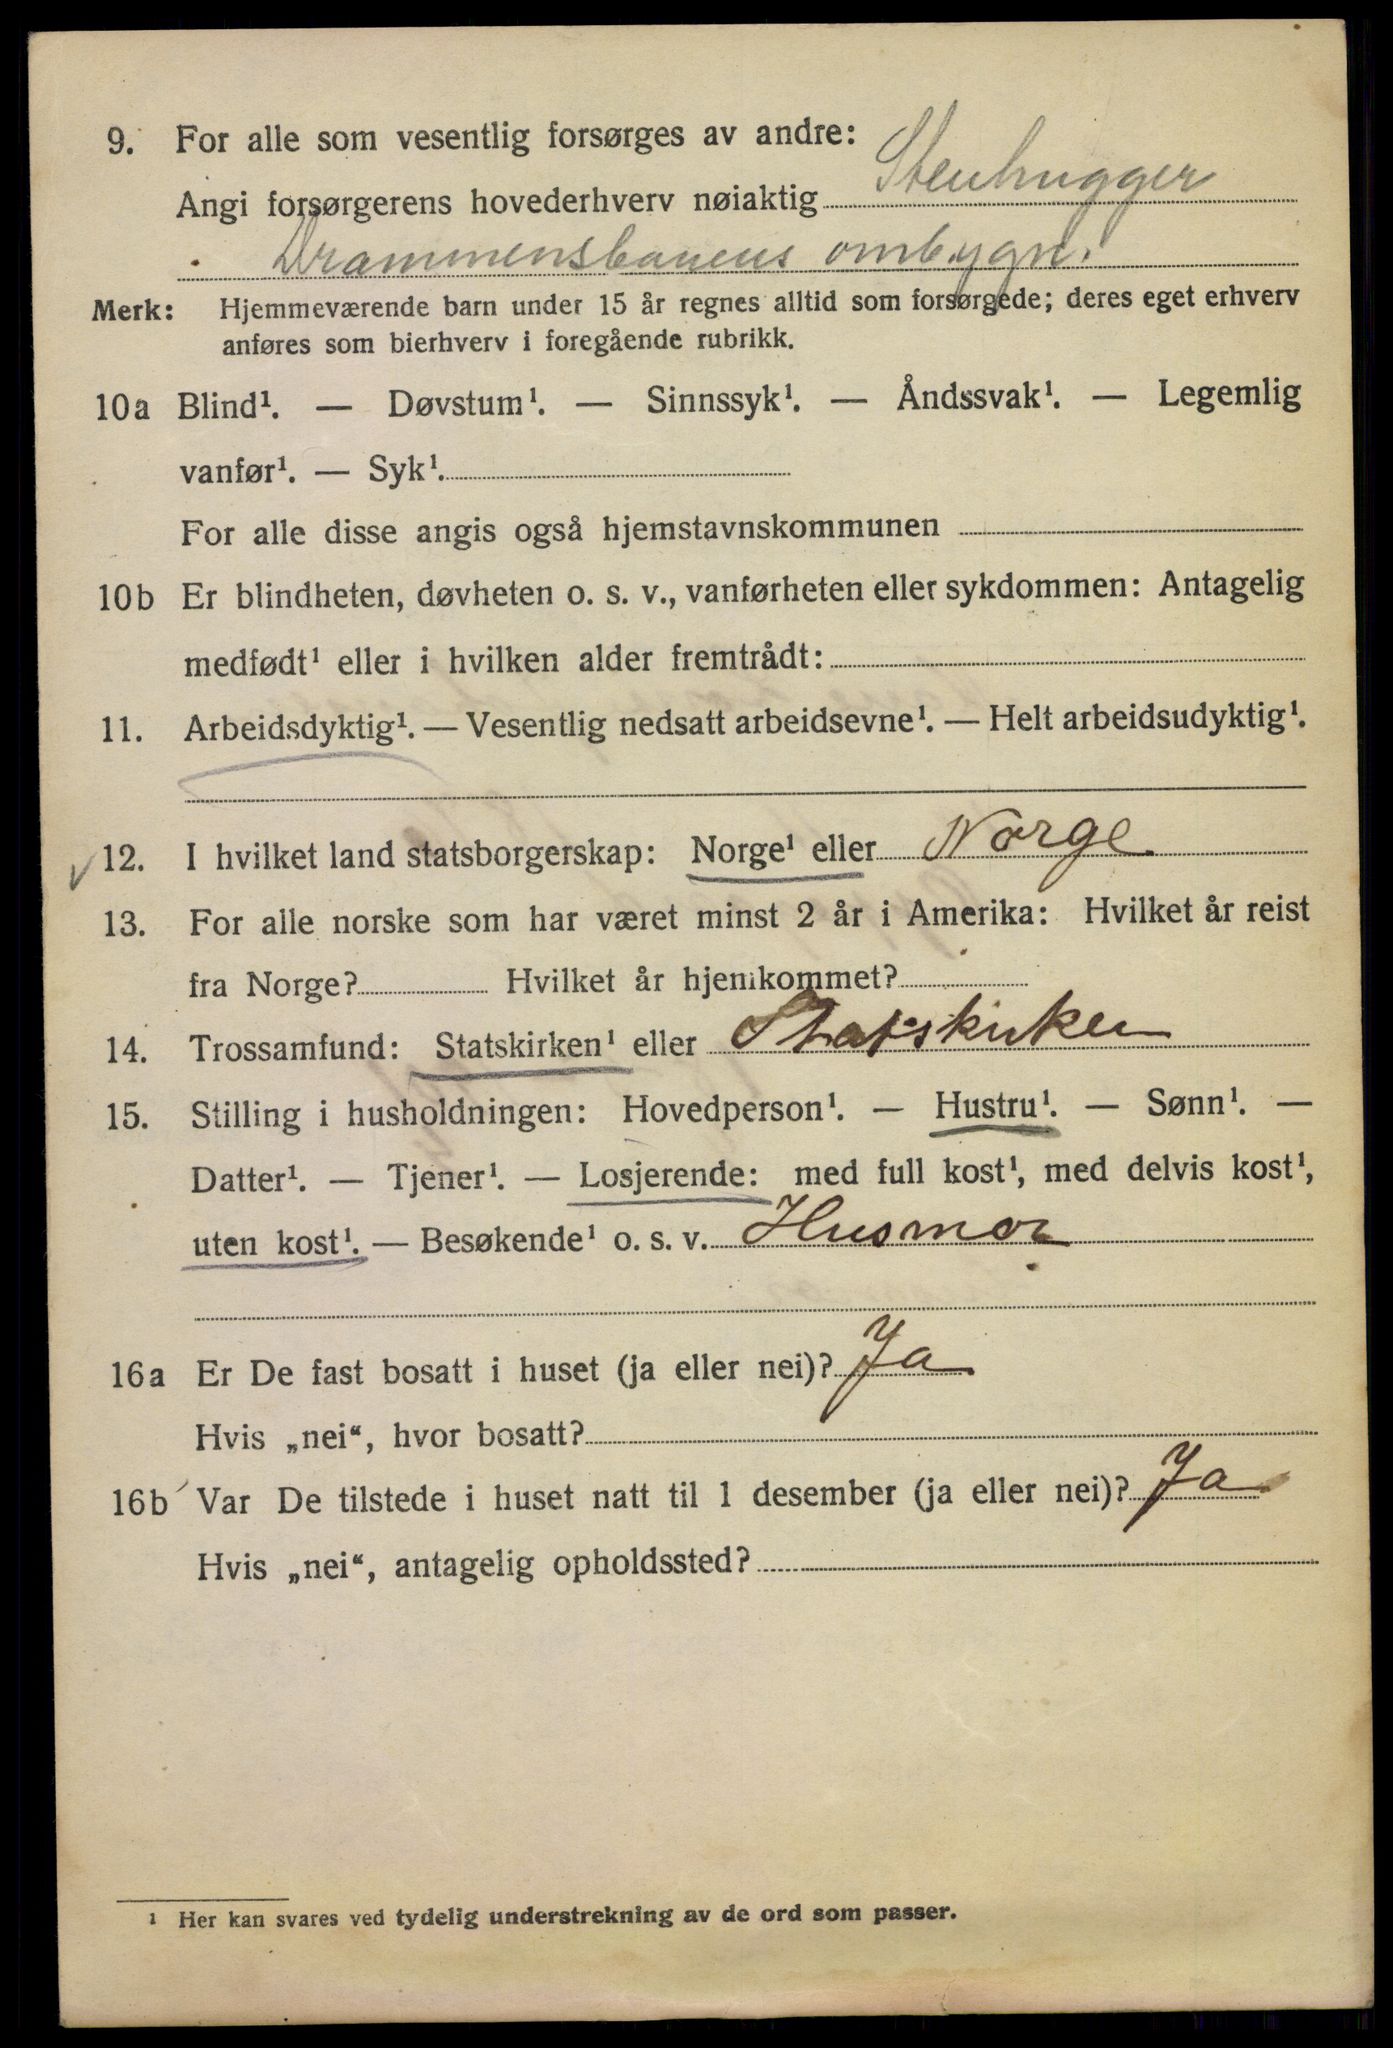 9. For alle som vesentlig forsørges av andre:
Angi forsørgerens hovederhverv nøiaktig Stenhugger
Drammensbanens ombygn.
Merk: Hjemmeværende barn under 15 år regnes alltid som forsørgede; deres eget erhverv
anføres som bierhverv i foregående rubrikk.
10a Blind¹. — Døvstum¹. — Sinnssyk¹. — Åndssvak¹. — Legemlig
vanfør¹. — Syk¹.
For alle disse angis også hjemstavnskommunen
10b Er blindheten, døvheten o. s. v., vanførheten eller sykdommen: Antagelig
medfødt¹ eller i hvilken alder fremtrådt:
11. Arbeidsdyktig¹. — Vesentlig nedsatt arbeidsevne¹. — Helt arbeidsudyktig¹.
12. I hvilket land statsborgerskap: Norge¹ eller Norge
13. For alle norske som har været minst 2 år i Amerika: Hvilket år reist
fra Norge? Hvilket år hjemkommet?
14. Trossamfund: Statskirken¹ eller Statskirken
15. Stilling i husholdningen: Hovedperson¹. — Hustru¹. — Sønn¹. —
Datter¹. — Tjener¹. — Losjerende: med full kost¹, med delvis kost¹,
uten kost¹. — Besøkende¹ o. s. v. Husmor
16a Er De fast bosatt i huset (ja eller nei)? Ja
Hvis „nei“, hvor bosatt?
16b Var De tilstede i huset natt til 1 desember (ja eller nei)? Ja
Hvis „nei“, antagelig opholdssted?
¹ Her kan svares ved tydelig understrekning av de ord som passer.